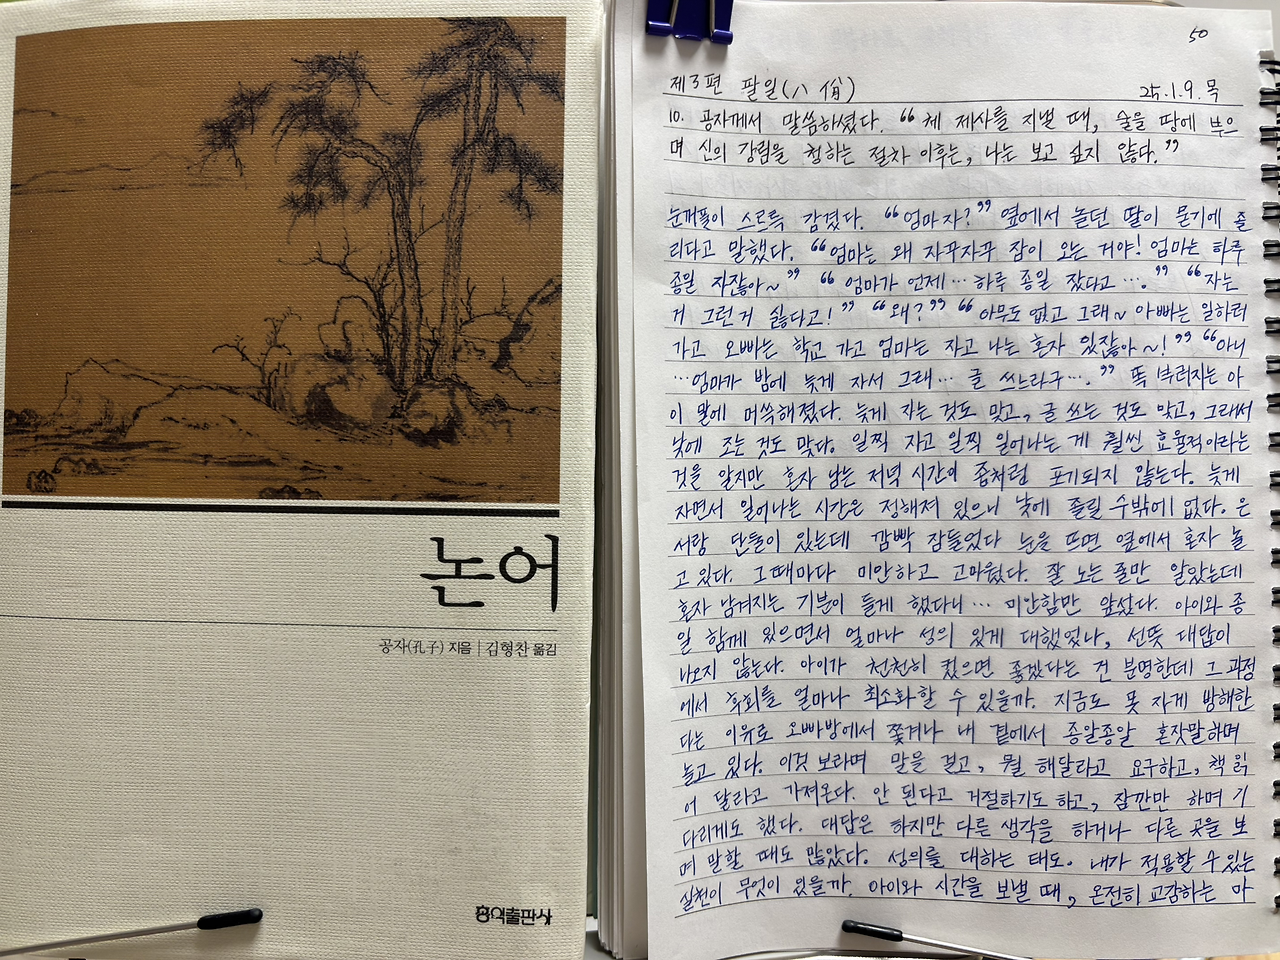 논어
공자(孔子) 지음 | 김형찬 옮김
홍익출판사
50
제3편 팔일(八佾) 25.1.9.목
10. 공자께서 말씀하셨다. “체 제사를 지낼 때, 술을 땅에 부으
며 신의 강림을 청하는 절차 이후는, 나는 보고 싶지 않다.”
눈꺼풀이 스르륵 감겼다. “엄마 자?” 옆에서 놀던 딸이 묻기에 졸
리다고 말했다. “엄마는 왜 자꾸자꾸 잠이 오는 거야! 엄마는 하루
종일 자잖아~” “엄마가 언제… 하루 종일 잤다고….” “자는
거 그런거 싫다고!” “왜?” “아무도 없고 그래~ 아빠는 일하러
가고 오빠는 학교 가고 엄마는 자고 나는 혼자 있잖아~!” “아니
…엄마가 밤에 늦게 자서 그래… 글 쓰느라구….” 똑 부러지는 아
이 말에 머쓱해졌다. 늦게 자는 것도 맞고, 글 쓰는 것도 맞고, 그래서
낮에 조는 것도 맞다. 일찍 자고 일찍 일어나는 게 훨씬 효율적이라는
것을 알지만 혼자 남는 저녁 시간이 좀처럼 포기되지 않는다. 늦게
자면서 일어나는 시간은 정해져 있으니 낮에 졸릴 수밖에 없다. 은
서랑 단둘이 있는데 깜빡 잠들었다 눈을 뜨면 옆에서 혼자 놀
고 있다. 그때마다 미안하고 고마웠다. 잘 노는 줄만 알았는데
혼자 남겨지는 기분이 들게 했다니… 미안함만 앞섰다. 아이와 종
일 함께 있으면서 얼마나 성의 있게 대했었나, 선뜻 대답이
나오지 않는다. 아이가 천천히 컸으면 좋겠다는 건 분명한데 그 과정
에서 후회를 얼마나 최소화할 수 있을까. 지금도 못 자게 방해한
다는 이유로 오빠방에서 쫓겨나 내 곁에서 종알종알 혼잣말하며
놀고 있다. 이것 보라며 말을 걸고, 뭘 해달라고 요구하고, 책 읽
어 달라고 가져온다. 안 된다고 거절하기도 하고, 잠깐만 하며 기
다리게도 했다. 대답은 하지만 다른 생각을 하거나 다른 곳을 보
며 말할 때도 많았다. 성의를 대하는 태도. 내가 적용할 수 있는
실천이 무엇이 있을까. 아이와 시간을 보낼 때, 온전히 교감하는 마